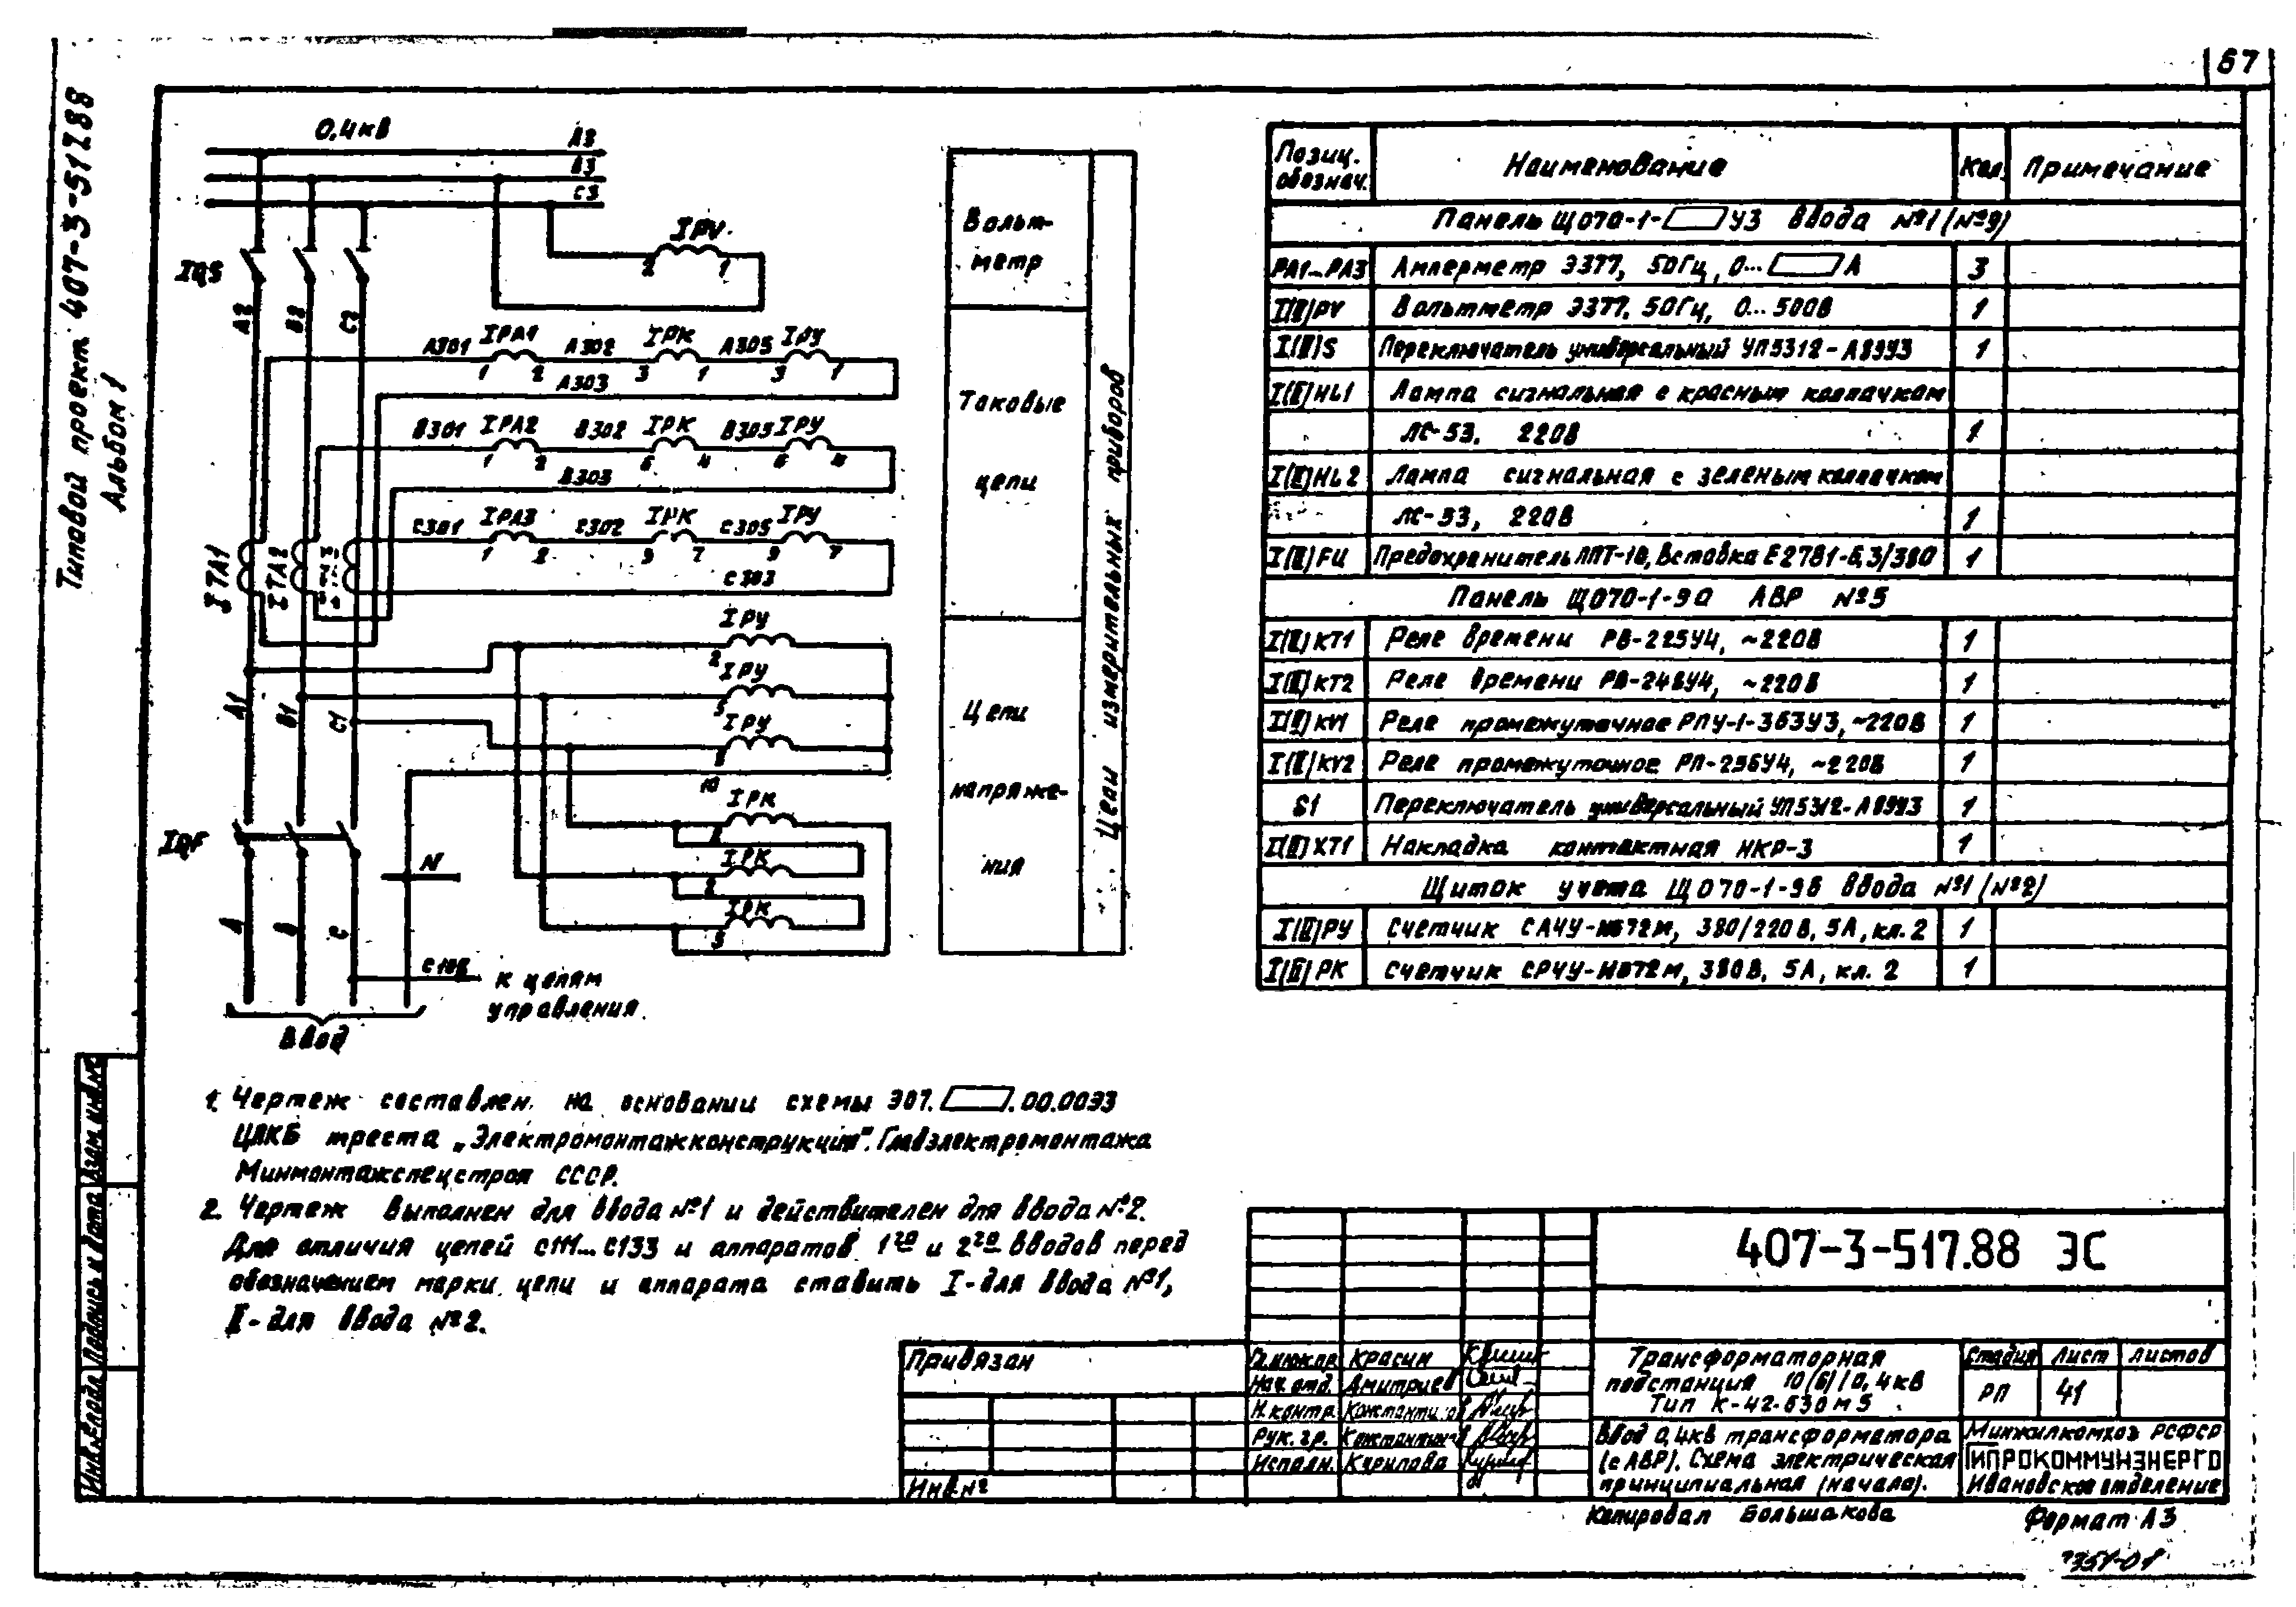 67
Типовой проект 407-3-517.88
Альбом 1
0,4кВ
А3
В3
С3
IPV
2 1
IQS
А2 В2 С2
А301 IPA1 А302 IPK А305 IPУ
1 2 3 1 3 1
А303
В301 IPA2 В302 IPK В305 IPУ
1 2 6 4 6 4
В303
С301 IPA3 С302 IPK С305 IPУ
1 2 9 7 9 7
С303
ITA1 ITA2
IPУ
2
IPУ
5
IPУ
8
10
А1 В1 С1
IPK
IPK
2
IPK
5
IQF
N
А В С
К цепям
управления
Ввод
Вольт-
метр
Токовые
цепи
Цепи
напряже-
ния
Цепи измерительных приборов
Позиц. обознач. Наименование Кол. Примечание
Панель ЩО70-1-▭У3 ввода №1(№9)
РА1-РА3 Амперметр Э377, 50Гц, 0...▭А 3
I(II)PV Вольтметр Э377, 50Гц, 0...500В 1
I(II)S Переключатель универсальный УП5312-А89У3 1
I(II)HL1 Лампа сигнальная с красным колпачком
ЛС-53, 220В 1
I(II)HL2 Лампа сигнальная с зеленым колпачком
ЛС-53, 220В 1
I(II)FU Предохранитель ППТ-10, вставка Е2781-6,3/380 1
Панель ЩО70-1-90 АВР №5
I(II)КТ1 Реле времени РВ-225У4, ~220В 1
I(II)КТ2 Реле времени РВ-248У4, ~220В 1
I(II)KV1 Реле промежуточное РПУ-1-363У3, ~220В 1
I(II)KV2 Реле промежуточное РП-256У4, ~220В 1
S1 Переключатель универсальный УП5312-А89У3 1
I(II)XT1 Накладка контактная НКР-3 1
Щиток учета ЩО70-1-96 ввода №1(№2)
I(II)РУ Счетчик СА4У-И672М, 380/220В, 5А, кл. 2 1
I(II)РК Счетчик СР4У-И672М, 380В, 5А, кл. 2 1
1. Чертеж составлен на основании схемы Э07.▭.00.00Э3
ЦПКБ треста „Электромонтажконструкция". Главэлектромонтажа
Минмонтажспецстроя СССР.
2. Чертеж выполнен для ввода №1 и действителен для ввода №2.
Для отличия цепей С111...С133 и аппаратов 1го и 2го вводов перед
обозначением марки цепи и аппарата ставить I-для ввода №1,
II-для ввода №2.
Взам. инв.№
Подпись и дата
Инв.№ подл.
Привязан
Инв.№
407-3-517.88 ЭС
Гл.инж.пр. Красин
Нач. отд. Дмитриев
Н.контр. Константинов
Рук. гр. Константинов
Исполн. Курилова
Трансформаторная
подстанция 10(6)/0,4кВ
Тип К-42-630М5
Стадия Лист Листов
РП 41
Ввод 0,4кВ трансформатора
(с АВР). Схема электрическая
принципиальная (начало).
Минжилкомхоз РСФСР
ГИПРОКОММУНЭНЕРГО
Ивановское отделение
Копировал Большакова
Формат А3